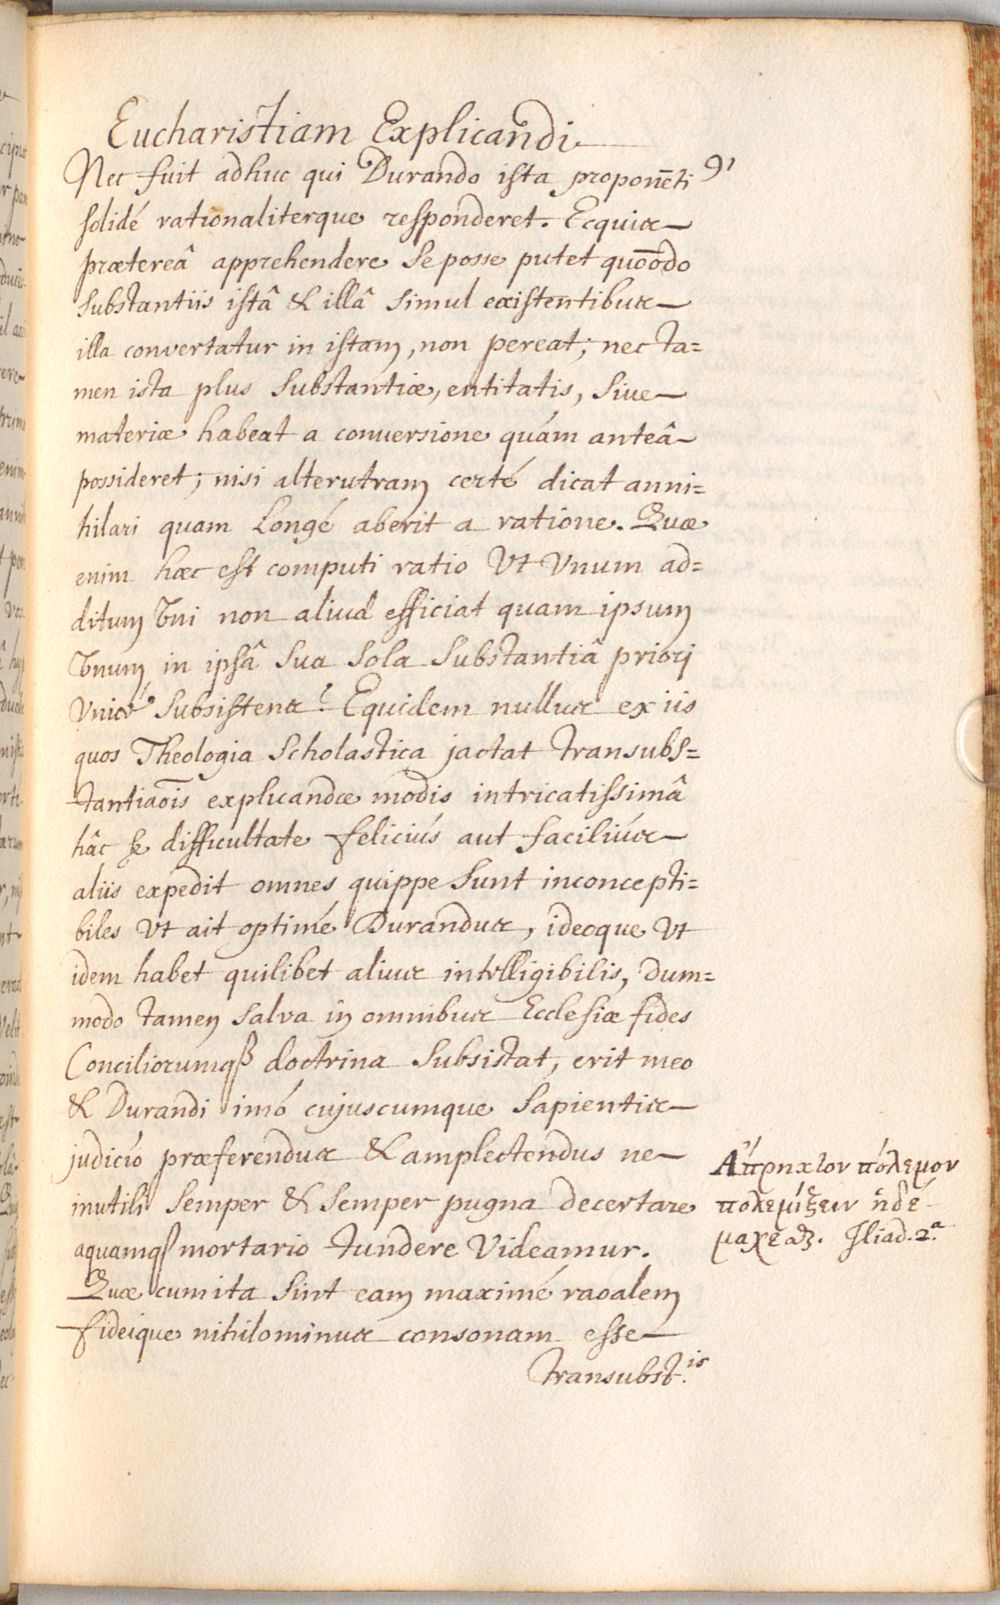 Eucharistiam Explicandi
91
Nec fuit adhuc qui Durando ista proponēti
solidé rationaliterque responderet. Ecquis
prætereâ apprehendere se posse putet quōodo
substantiis istâ & illâ simul existentibus
illa convertatur in istam, non pereat; nec ta=
men ista plus substantiæ, entitatis, sive
materiæ habeat a conversione quám anteâ
possideret; nisi alterutram certé dicat anni=
hilari quam Longé aberit a ratione. Quæ
enim hæc est computi ratio Ut Unum ad=
ditum Uni non aliud efficiat quam ipsum
Unum in ipsâ sua sola substantiâ priori
Unicé subsistens? Equidem nullus ex iis
quos Theologia Scholastica jactat transubs=
tantiaōis explicandæ modis intricatissimâ
hâc se difficultate feliciús aut faciliús
aliis expedit omnes quippe sunt inconcepti=
biles Ut ait optimé Durandus, ideoque Ut
idem habet quilibet alius intelligibilis, dum=
modo tamen salva in omnibus Ecclesiæ fides
Conciliorumqß doctrina subsistat, erit meo
& Durandi imó cujuscumque sapientis
judicio præferendus & amplectendus ne
inutili semper & semper pugna decertare
aquamqß mortario tundere Videamur.
Quæ cum ita sint eam maximé raōalem
fideique nihilominus consonam esse
transubst.is
Ἄπρηκτον πόλεμον
πολεμίξειν ἠδέ
μαχεσθαι. Iliad. 2.a